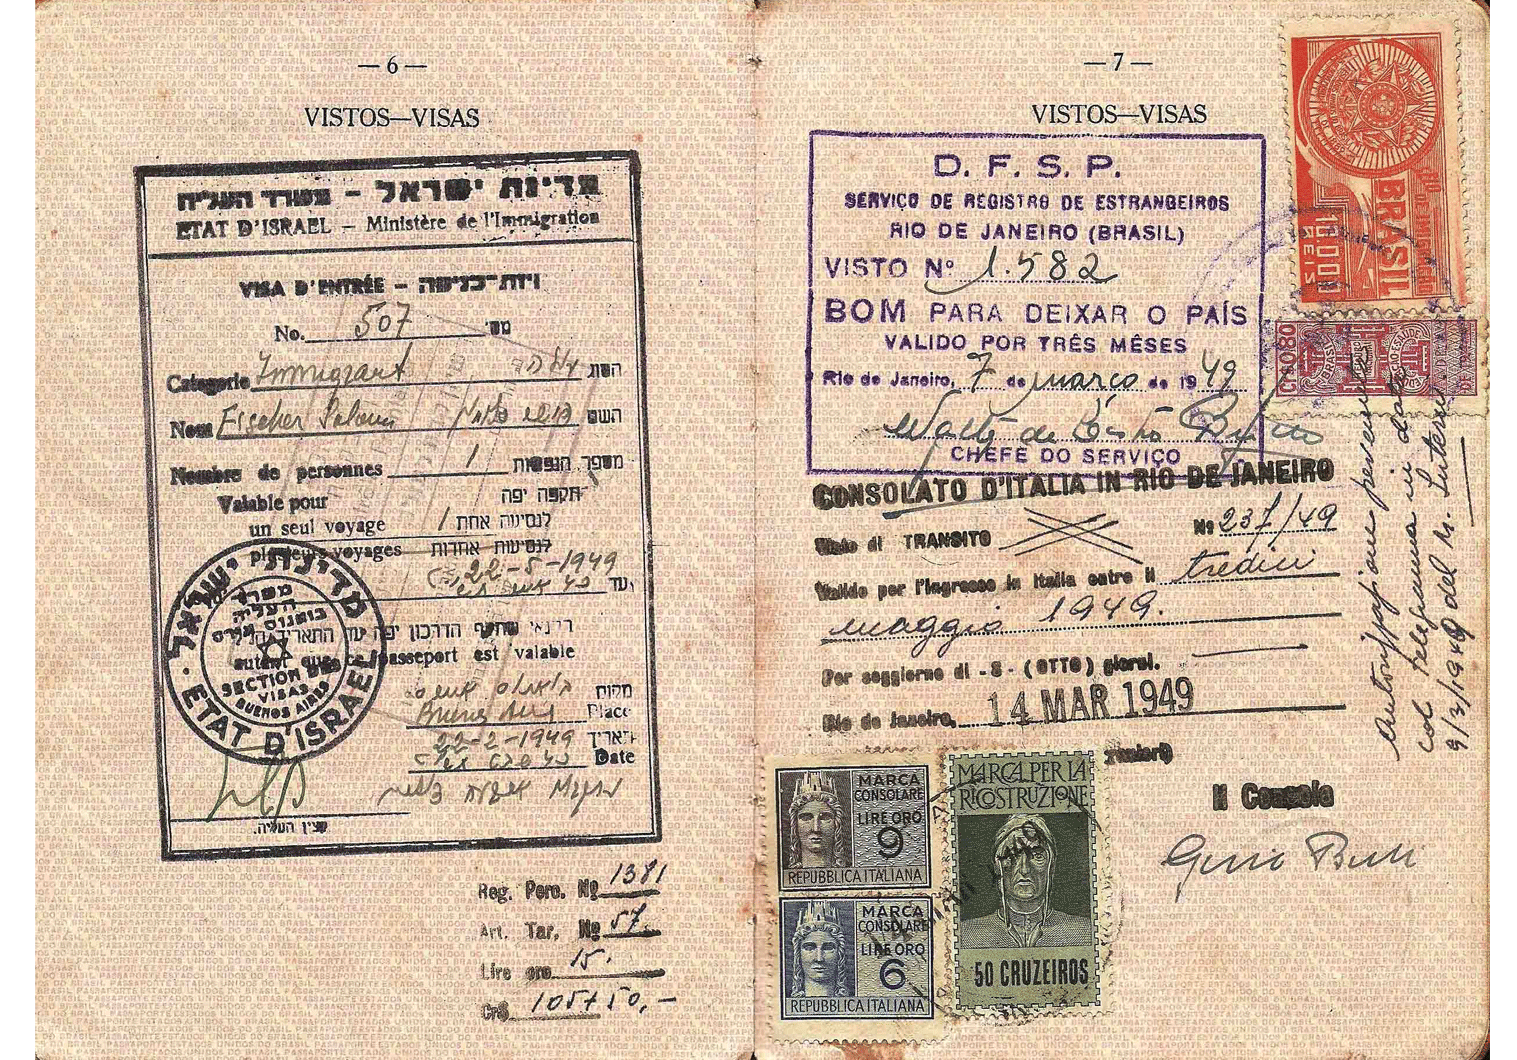 — 6 —
VISTOS—VISAS
מדינת ישראל – משרד העליה
ETAT D'ISRAEL – Ministère de l'Immigration
VISA D'ENTRÉE – ויזת-כניסה
No. 507 מס'
Categorie Immigrant עולה הסוג
Nom השם
Nombre de personnes 1 מספר הנפשות
Valable pour תקפה יפה
un seul voyage 1 לנסיעה אחת
plusieurs voyages לנסיעות אחדות
22-5-1949
עד
בתנאי שתוקף הדרכון יפה עד התאריך הנ"ל
autant que le passeport est valable
בואנוס איירס מקום
Buenos Aires Place
22-2-1949 תאריך
Date
קצין העליה.
מדינת ישראל
משרד העליה
בואנוס איירס
SECTION DES
VISAS
BUENOS AIRES
ETAT D'ISRAEL
Reg. Perc. No 1381
Art. Tar. No 57.
Lire oro 15.
Cr$ 105+50,—
— 7 —
VISTOS—VISAS
D. F. S. P.
SERVIÇO DE REGISTRO DE ESTRANGEIROS
RIO DE JANEIRO (BRASIL)
VISTO Nº 1.582
BOM PARA DEIXAR O PAÍS
VALIDO POR TRÊS MÊSES
Rio de Janeiro, 7 de março de 1949
CHEFE DO SERVIÇO
BRASIL
10.000
REIS
Cr$0,80
BRASIL
CONSOLATO D'ITALIA IN RIO DE JANEIRO
Visto di TRANSITO No 237/49
Valido per l'ingresso in Italia entro il tredici
maggio 1949.
Per soggiorno di - 8 - (OTTO) giorni.
Rio de Janeiro, 14 MAR 1949
Il Console
Autorizzazione pervenuta
col telegramma in data
9/3/1949 del M. Interni
MARCA
CONSOLARE
LIRE ORO
9
REPUBBLICA ITALIANA
MARCA
CONSOLARE
LIRE ORO
6
REPUBBLICA ITALIANA
MARCA PER LA
RICOSTRUZIONE
50 CRUZEIROS